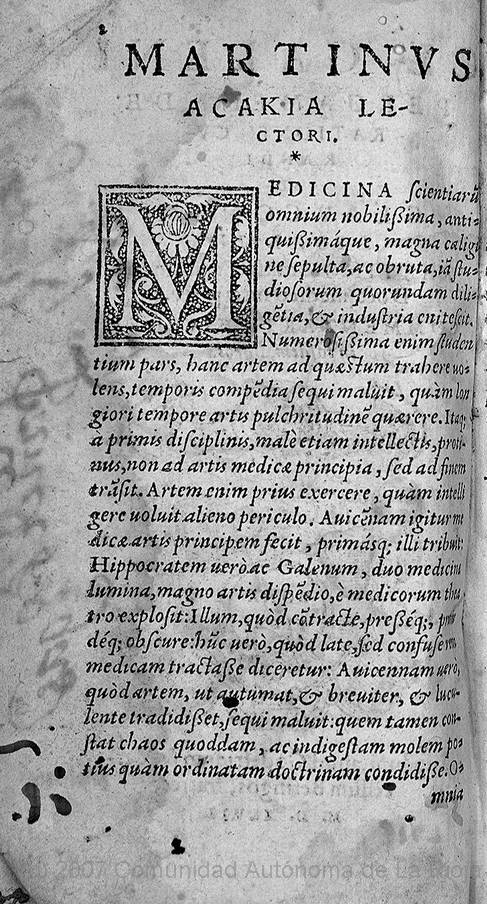 MARTINVS
ACAKIA LE-
CTORI.
*
MEDICINA scientiarū
omnium nobilißima, anti-
quißimáque, magna caligi
ne sepulta, ac obruta, iā stu-
diosorum quorundam dili-
gētia, & industria enitescit.
Numerosißima enim studen
tium pars, hanc artem ad quæstum trahere vo-
lens, temporis compēdia sequi maluit, quàm lon
giori tempore artis pulchritudinē quærere. Itaq;
a primis disciplinis, malè etiam intellectis, proti-
nus, non ad artis medicæ principia, sed ad finem
trāsit. Artem enim prius exercere, quàm intelli
gere voluit alieno periculo. Auicēnam igitur me
dicæ artis principem fecit, primásq; illi tribuit:
Hippocratem verò ac Galenum, duo medicinæ
lumina, magno artis dispēdio, è medicorum thea
tro explosit: Illum, quòd cōtractè, preßéq;,
déq; obscure: hūc verò, quòd latè, sed confuse
medicam tractaße diceretur: Auicennam verò,
quòd artem, ut autumat, & breuiter, & lucu-
lente tradidißet, sequi maluit: quem tamen con-
stat chaos quoddam, ac indigestam molem po-
tius quàm ordinatam doctrinam condidiße. O-
mnia
© 2007 Comunidad Autónoma de La Rioja